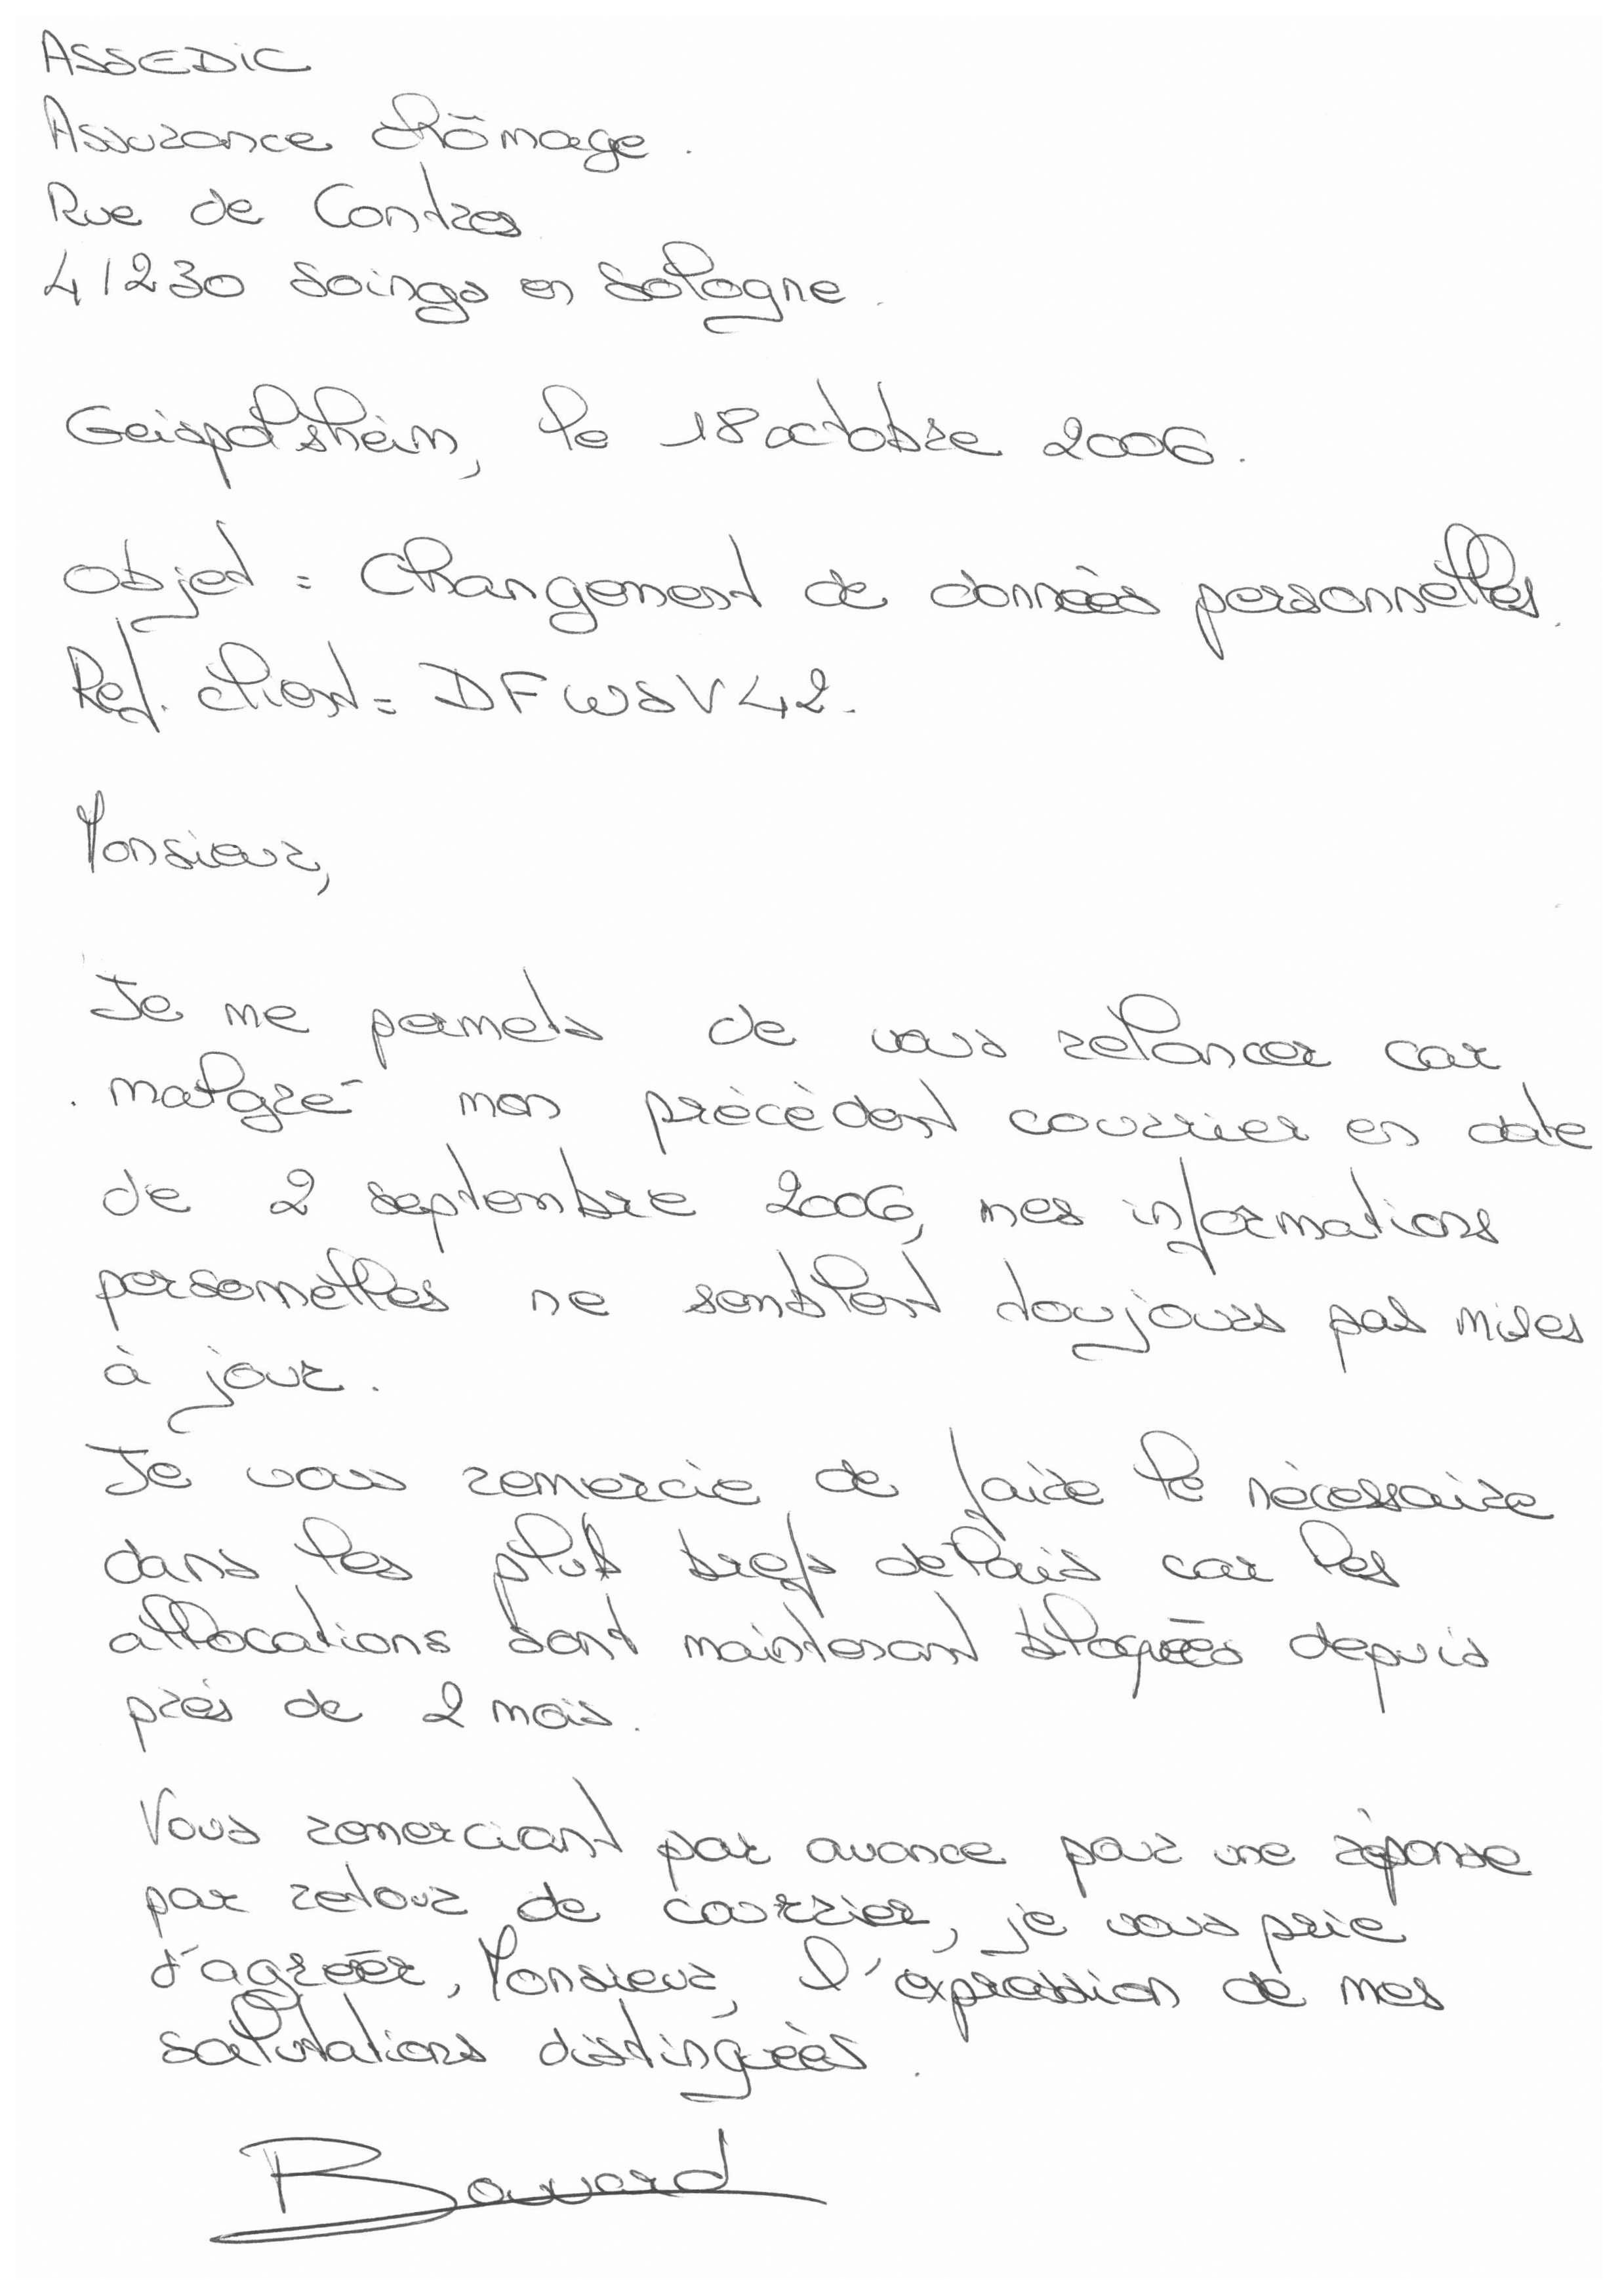 ASSEDIC
Assurance chômage.
Rue de Contres
41230 Soings en Sologne.
Geispolsheim, le 18 octobre 2006.
Objet : Changement de données personnelles.
Ref. client : DFWSV42.
Monsieur,
Je me permets de vous relancer car
malgré mon précédent courrier en date
de 2 septembre 2006, mes informations
personnelles ne semblent toujours pas mises
à jour.
Je vous remercie de faire le nécessaire
dans les plus brefs délais car les
allocations sont maintenant bloquées depuis
près de 2 mois.
Vous remerciant par avance pour une réponse
par retour de courrier, je vous prie
d'agréer, Monsieur, l'expression de mes
salutations distinguées.